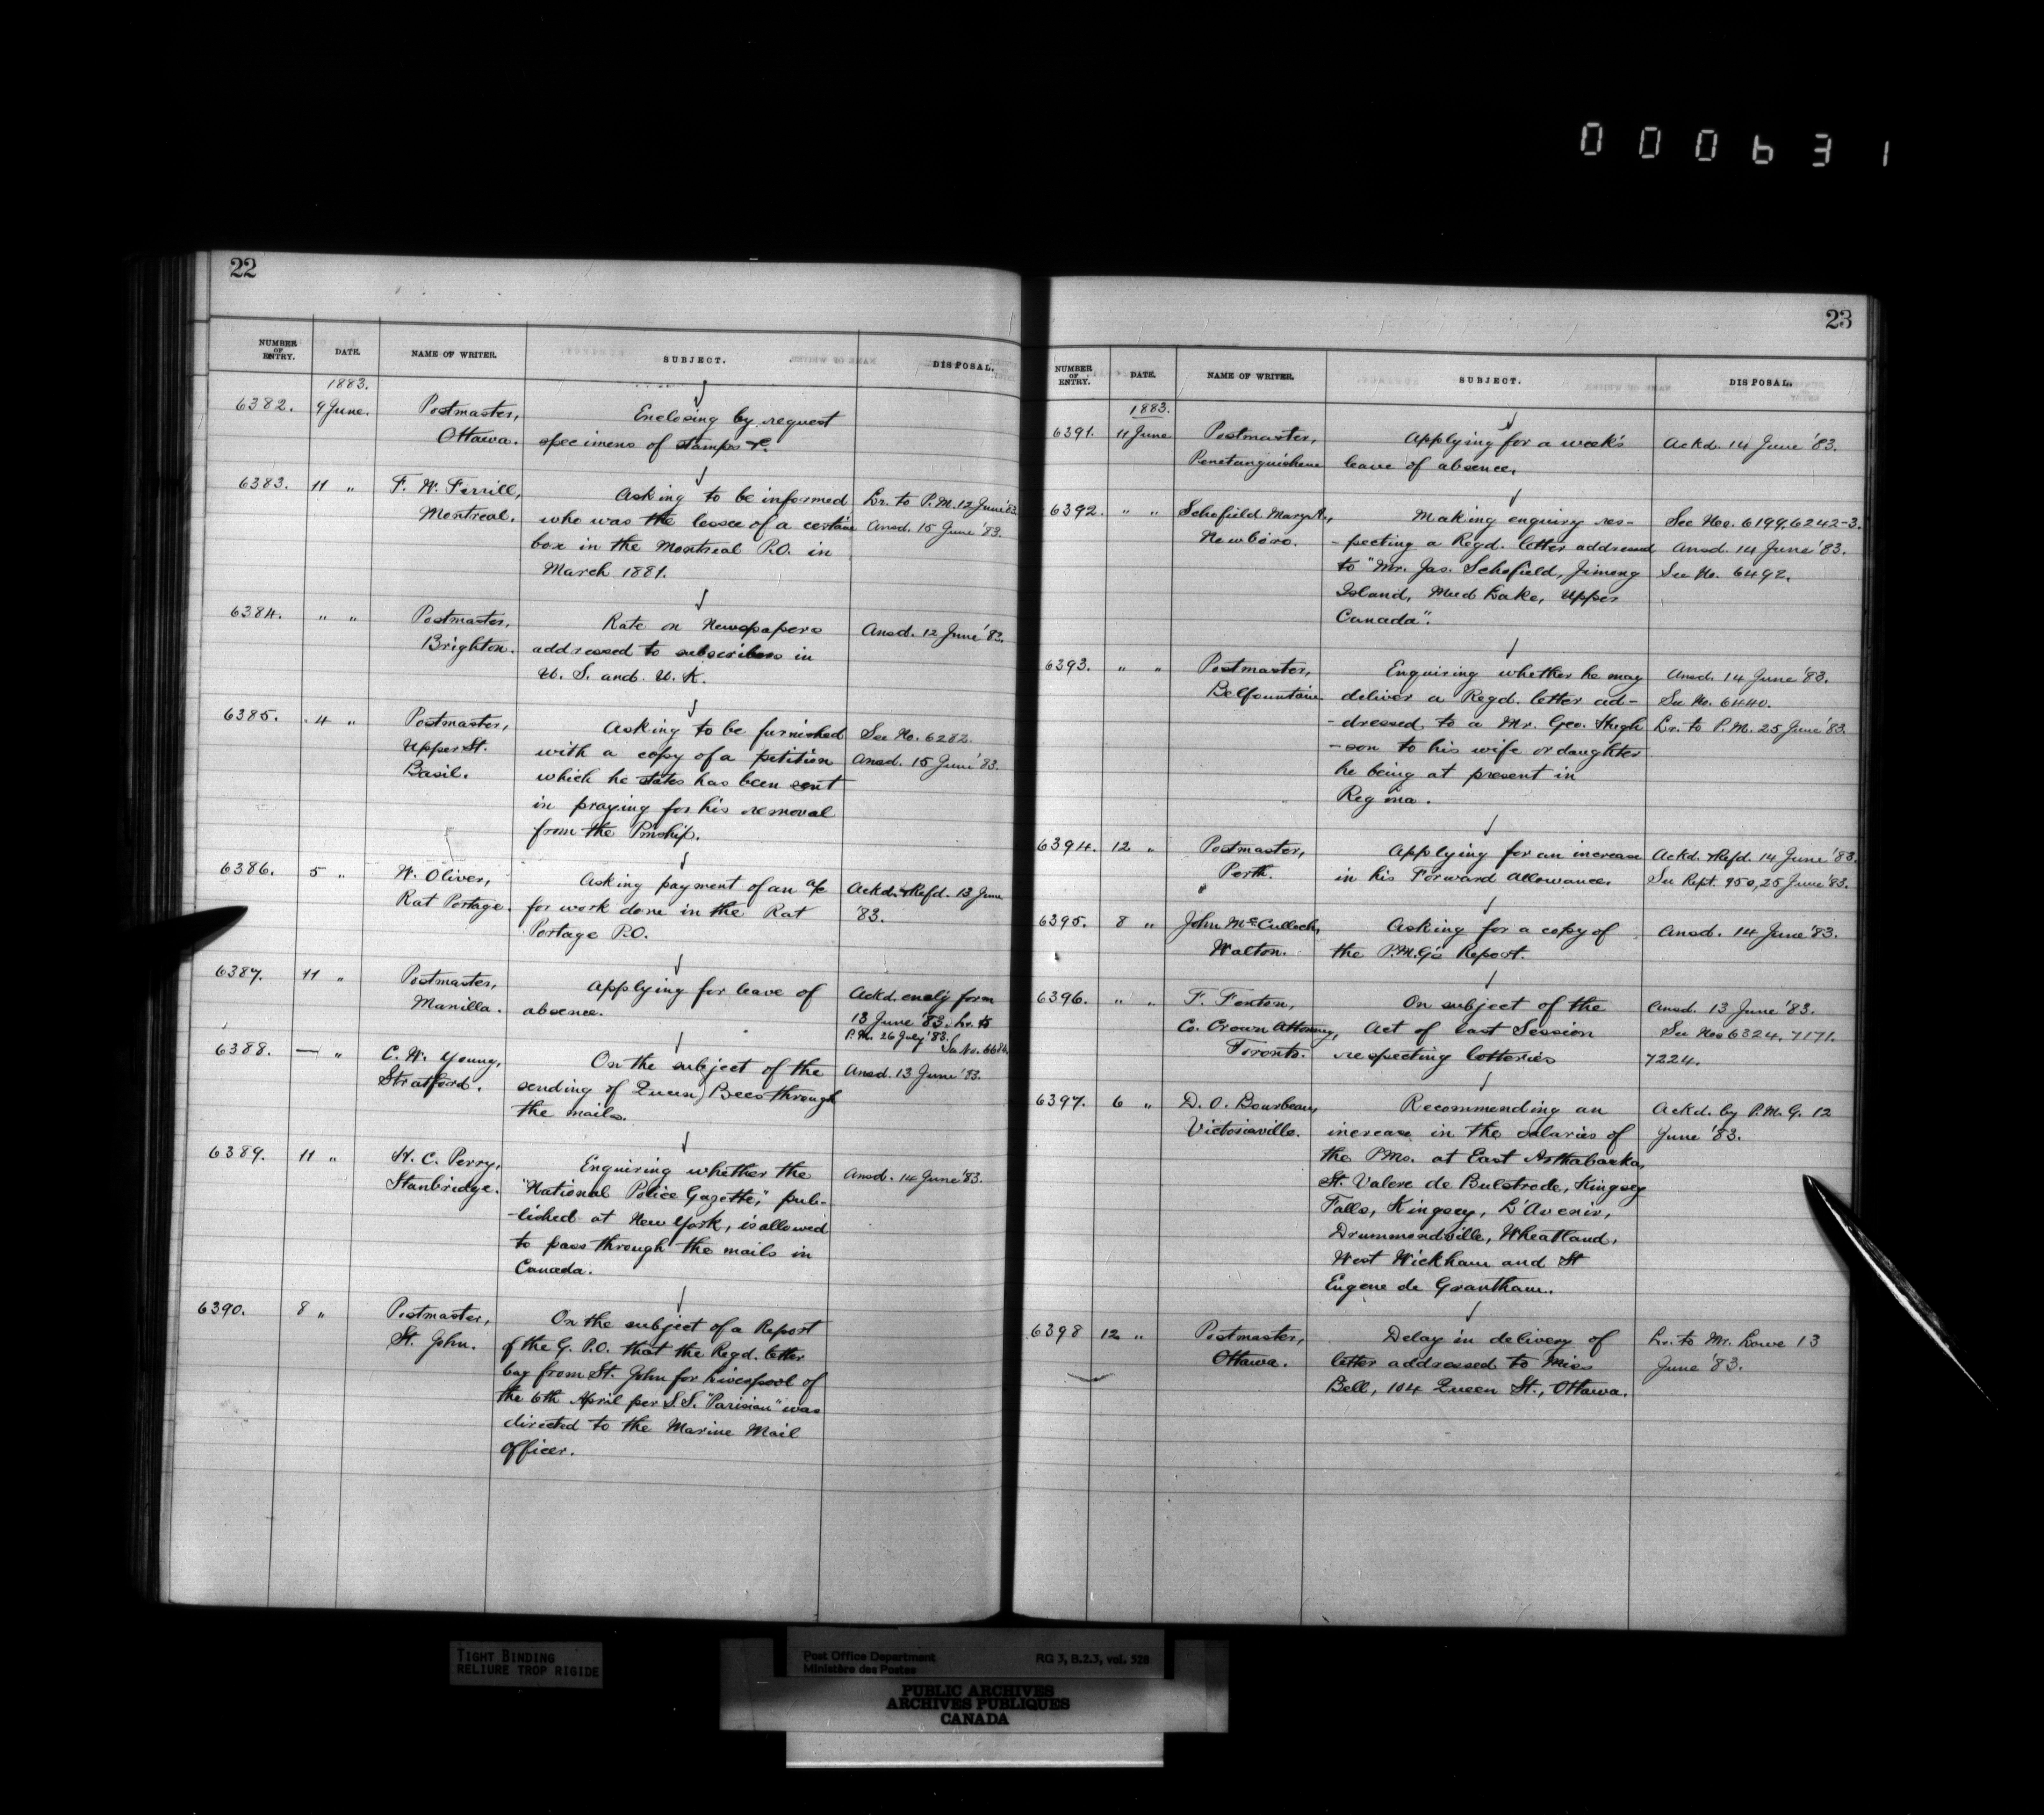 000631
22
NUMBER OF ENTRY. DATE. NAME OF WRITER. SUBJECT. DISPOSAL.
1883.
6382. 9 June. Postmaster, Enclosing by request
Ottawa. specimens of stamps &c.
6383. 11 " F. W. Ferrill, Asking to be informed Lr. to P.M. 12 June '83.
Montreal. who was the lessee of a certain Ansd. 15 June '83.
box in the Montreal P.O. in
March 1881.
6384. " " Postmaster, Rate on Newspapers Ansd. 12 June '83.
Brighton. addressed to subscribers in
U. S. and U. K.
6385. 4 " Postmaster, Asking to be furnished See No. 6282.
Upper St. with a copy of a petition Ansd. 15 June '83.
Basil. which he states has been sent
in praying for his removal
from the Pmship.
6386. 5 " W. Oliver, Asking payment of an a/c Ackd. & Refd. 13 June
Rat Portage. for work done in the Rat '83.
Portage P.O.
6387. 11 " Postmaster, Applying for leave of Ackd. encly form
Manilla. absence. 13 June '83. Lr. to
P.M. 26 July '83.
6388. — " C. W. Young, On the subject of the Ansd. 13 June '83.
Stratford. sending of Queen Bees through
the mails.
6389. 11 " H. C. Perry, Enquiring whether the Ansd. 14 June '83.
Stanbridge. "National Police Gazette," pub-
-lished at New York, is allowed
to pass through the mails in
Canada.
6390. 8 " Postmaster, On the subject of a Report
St. John. of the G. P.O. that the Regd. letter
bag from St. John for Liverpool of
the 6th April per S.S. "Parisian" was
directed to the Marine Mail
Officer.
23
NUMBER OF ENTRY. DATE. NAME OF WRITER. SUBJECT. DISPOSAL.
1883.
6391. 11 June Postmaster, Applying for a week's Ackd. 14 June '83.
Penetanguishene leave of absence.
6392. " " Schofield Mary A., Making enquiry res- See Nos. 6199, 6242-3.
Newboro. -pecting a Regd. letter addressed Ansd. 14 June '83.
to "Mr. Jas. Schofield, Jimong See No. 6492.
Island, Mud Lake, Upper
Canada".
6393. " " Postmaster, Enquiring whether he may Ansd. 14 June '83.
Belfountain. deliver a Regd. letter ad- See No. 6440.
-dressed to a Mr. Geo. Hugh Lr. to P.M. 25 June '83.
-son to his wife or daughter
he being at present in
Regina.
6394. 12 " Postmaster, Applying for an increase Ackd. & Refd. 14 June '83.
Perth. in his Forward Allowance. See Rept. 950, 25 June '83.
6395. 8 " John McCulloch, Asking for a copy of Ansd. 14 June '83.
Walton. the P.M.G's Report.
6396. " " F. Fenton, On subject of the Ansd. 13 June '83.
Co. Crown Attorney, Act of last Session See Nos 6324, 7171.
Toronto. respecting lotteries 7224.
6397. 6 " D. O. Bourbeau, Recommending an Ackd. by P.M.G. 12
Victoriaville. increase in the salaries of June '83.
the PMs. at East Arthabaska,
St. Valere de Bulstrode, Kingsey
Falls, Kingsey, L'Avenir,
Drummondville, Wheatland,
West Wickham and St
Eugene de Grantham.
6398 12 " Postmaster, Delay in delivery of Lr. to Mr. Lowe 13
Ottawa. letter addressed to Miss June '83.
Bell, 104 Queen St., Ottawa.
TIGHT BINDING
RELIURE TROP RIGIDE
Post Office Department RG 3, B.2.3, vol. 528
Ministère des Postes
PUBLIC ARCHIVES
ARCHIVES PUBLIQUES
CANADA